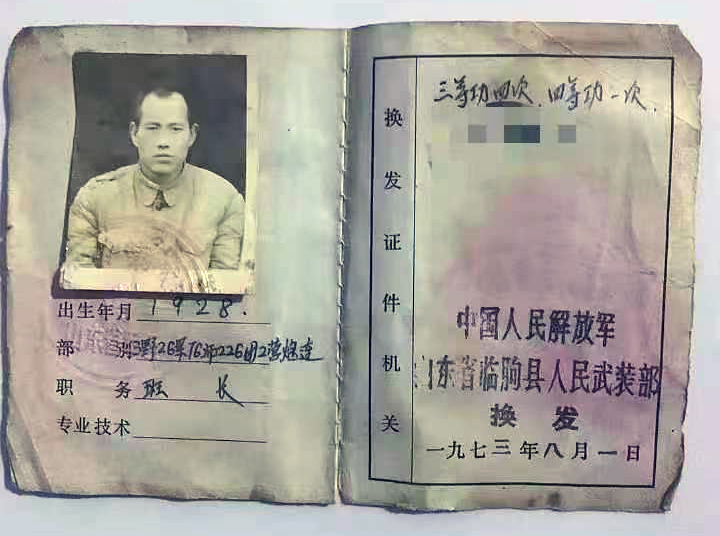 出生年月 1928.
部别 3野26军76师226团2营炮连
职务 班长
专业技术
三等功四次、四等功一次.
换发证件机关
中国人民解放军
山东省临朐县人民武装部
换发
一九七三年八月一日